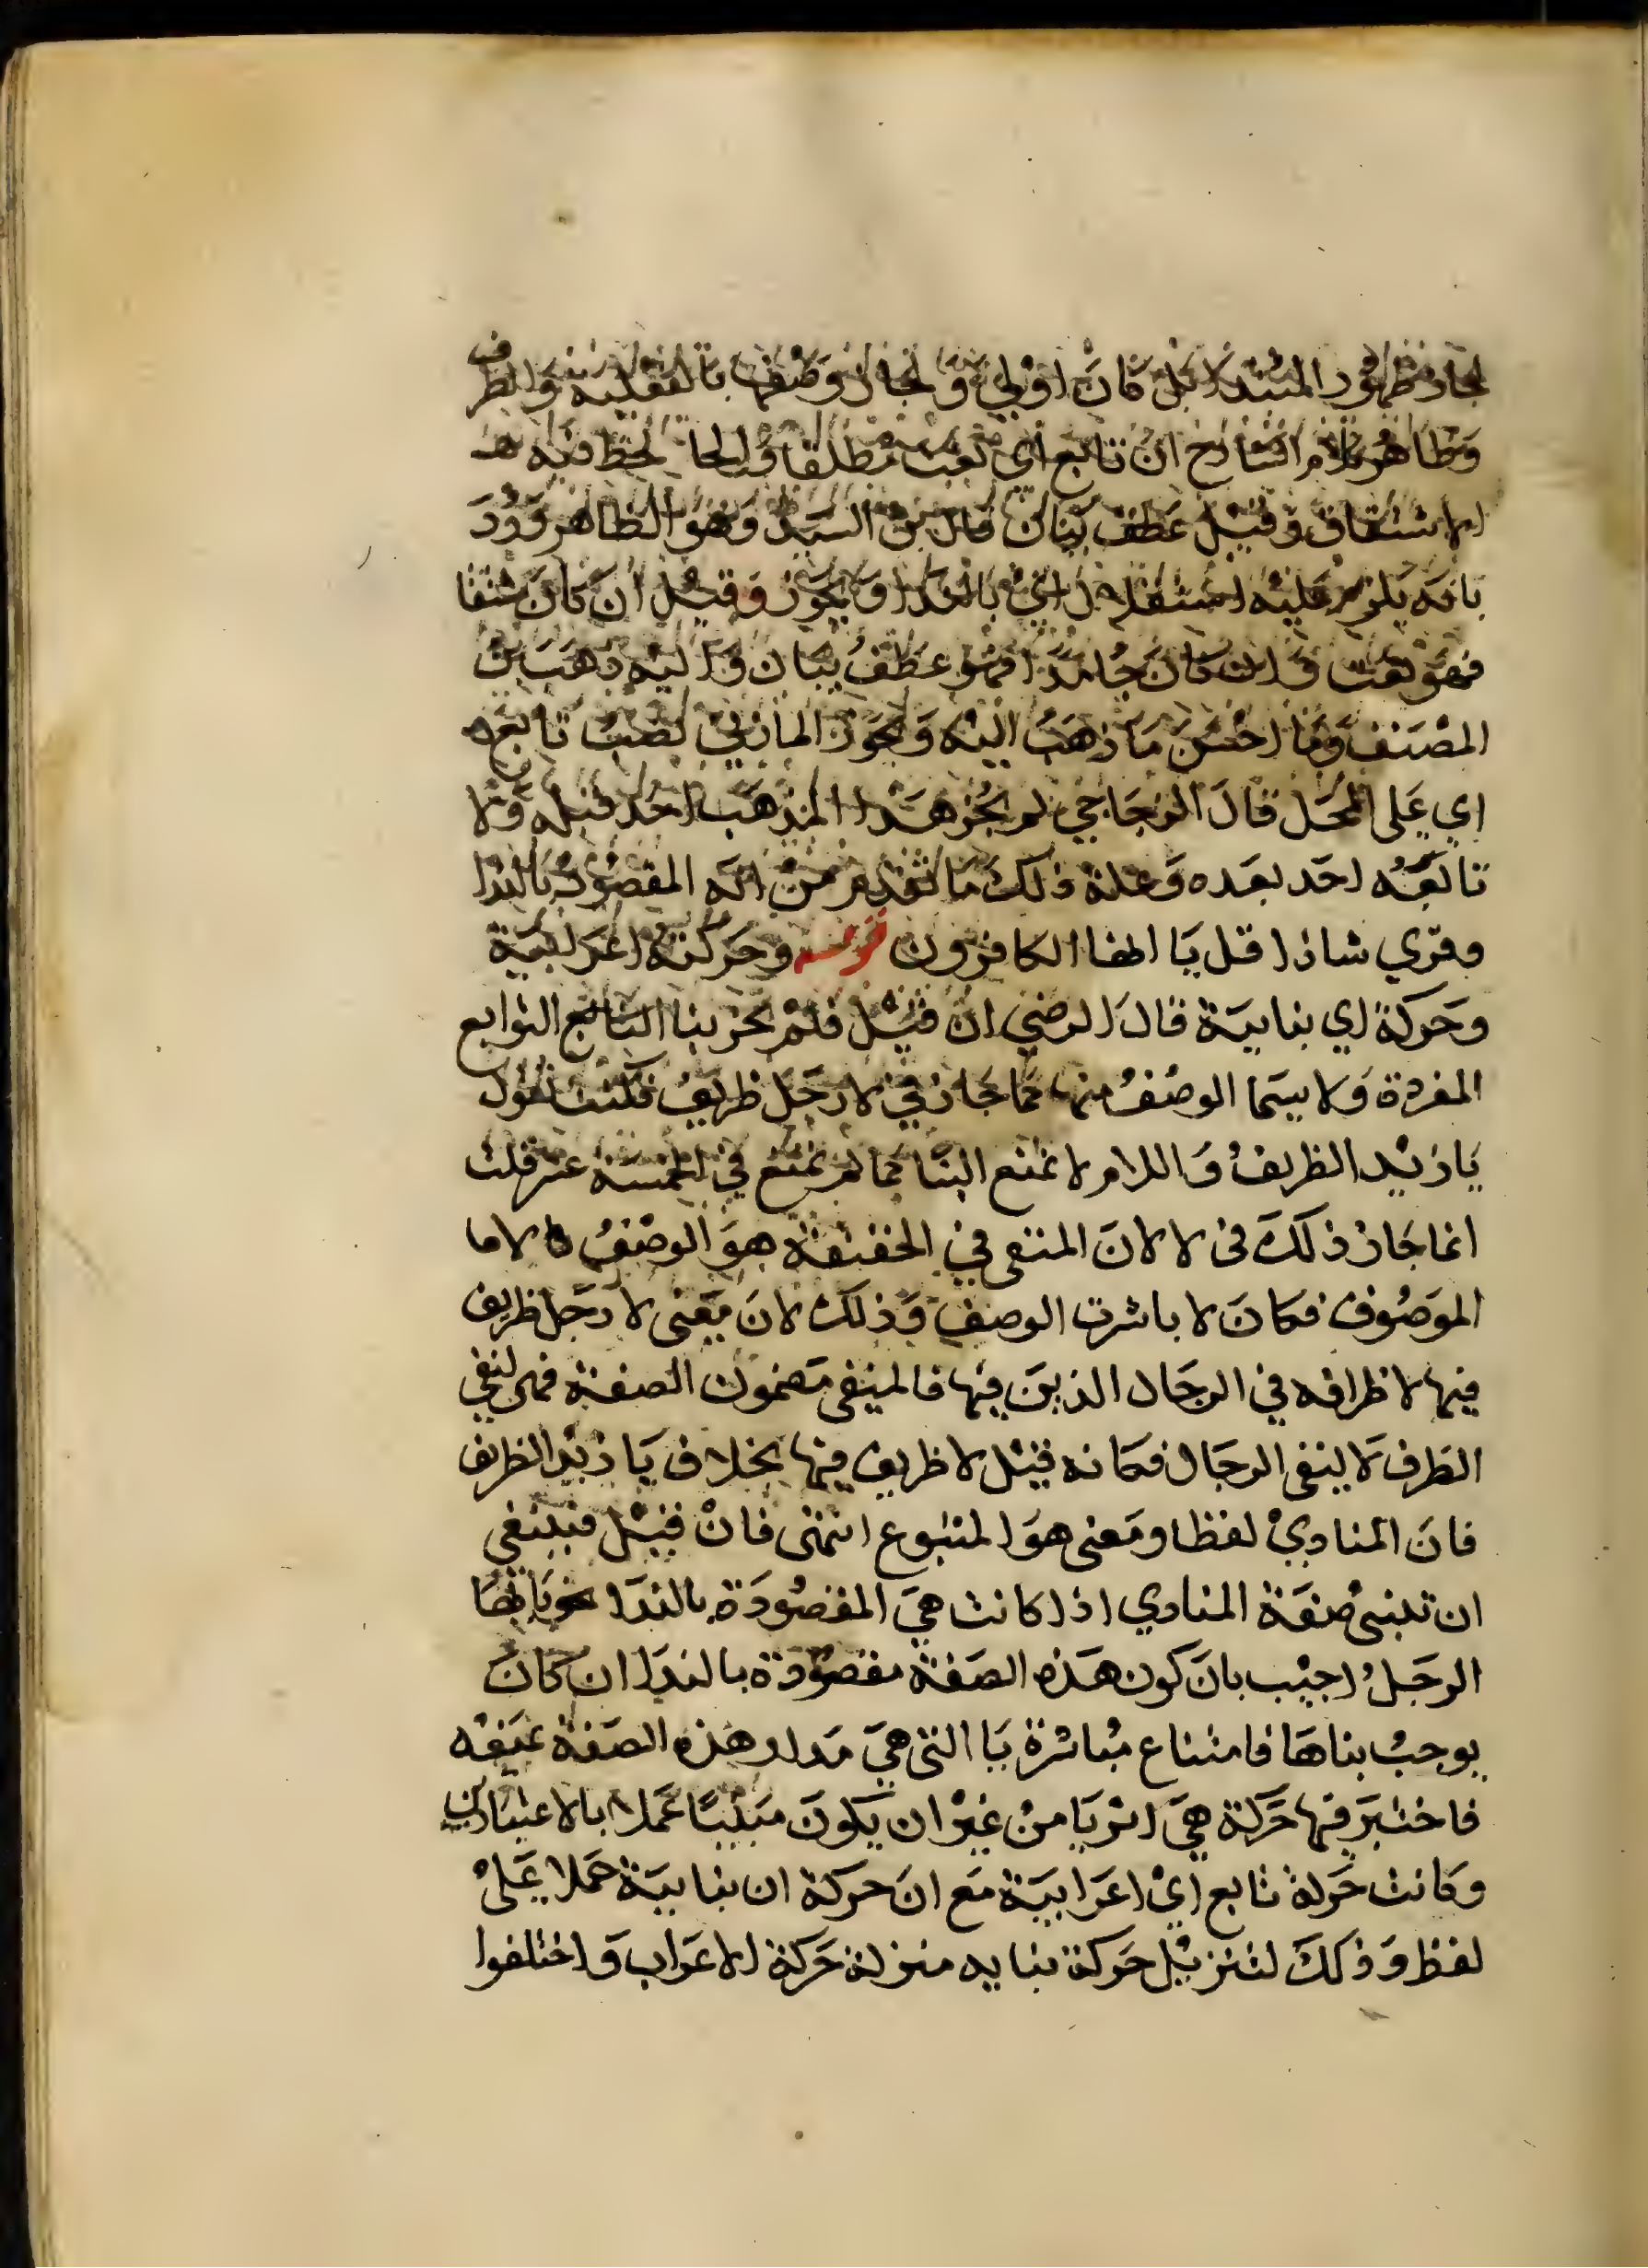 لجاز ظهور المبتدا بل كان اولي ولجاز وصفها بالفعلية والظرف
وظاهر كلام الشارح ان تابع اي نعت مطلقا
الاشتقاق وقيل عطف بيان قال بن السيد وهو الظاهر ورد
بانه يلزم عليه استقلال اي بالندا ولا يجوز وقيل ان كان مشتقا
فهو نعت وان كان جامدا فهو عطف بيان واليه ذهب بن
المصنف وما احسن ما ذهب اليه ويجوز المازني نصب تابع
اي على المحل قال الزجاجي لم يجز هذا المذهب احد قبله ولا
تابعه احد بعده وعلة ذلك ما تقدم من انه المقصود بالندا
وقري شاذا قل يا ايها الكافرون قوله وحركته اعرابية
وحركة اي بنايية قال الرضي ان قيل فلم يجز بنا التابع التوابع
المفردة ولا سيما الوصف منها كما جاز في لا رجل ظريف فكنت تقول
يا زيد الظريف واللام لا تمنع البنا كما لم تمنع في الخمسة عشر قلت
انما جاز ذلك في لا لان المنتفي في الحقيقة هو الوصف لا
الموصوف فكان لا باشرت الوصف وذلك لان معنى لا رجل ظريف
فيها لا ظرافه في الرجال الذين فيها فالمنفي مضمون الصفة فهي لنفي
الظرف لا لينفى الرجال فكانه قيل لا ظريف فيها بخلاف يا زيد الظريف
فان المنادي لفظا ومعنى هو المتبوع انتهى فان قيل فينبغي
ان تبنى صفة المنادي اذا كانت هي المقصودة بالندا نحو يا ايها
الرجل اجيب بان كون هذه الصفة مقصودة بالندا ان كان
يوجب بناها فامتناع مباشرة يا التي هي مدار هذه الصفة
فاختير فيها حركة هي اثر يا من غير ان يكون مبنيا عملا بالاعتبارين
وكانت حركة تابع اي اعرابية مع ان حركة ان بنايية حملا على
لفظ وذلك لتنزيل حركة بنايه منزلة حركة الاعراب واختلفوا